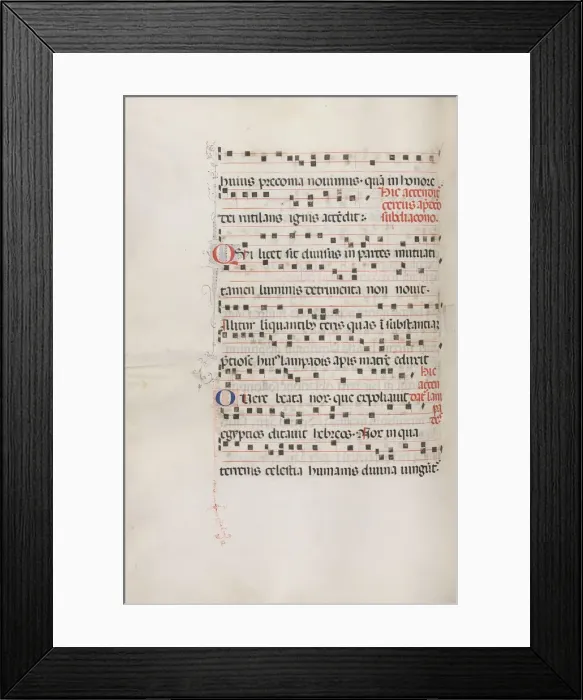 huius preconia novimus. quā in honorē
Hic accendit
dei rutilans ignis accēdit:
cereus
subdiacono.
Qui licet sit divisus in partes mutuati
tamen luminis detrimenta non novit.
Alitur liquantibꝫ ceris quas ī substantiā
p̄ciose huiꝰ lampadis apis mater eduxit
Hic
accen
O vere beata nox que expoliavit
dāt lam
pa
des
egyptios ditavit hebreos. Nox in qua
terrenis celestia humanis divina iungūt̄.